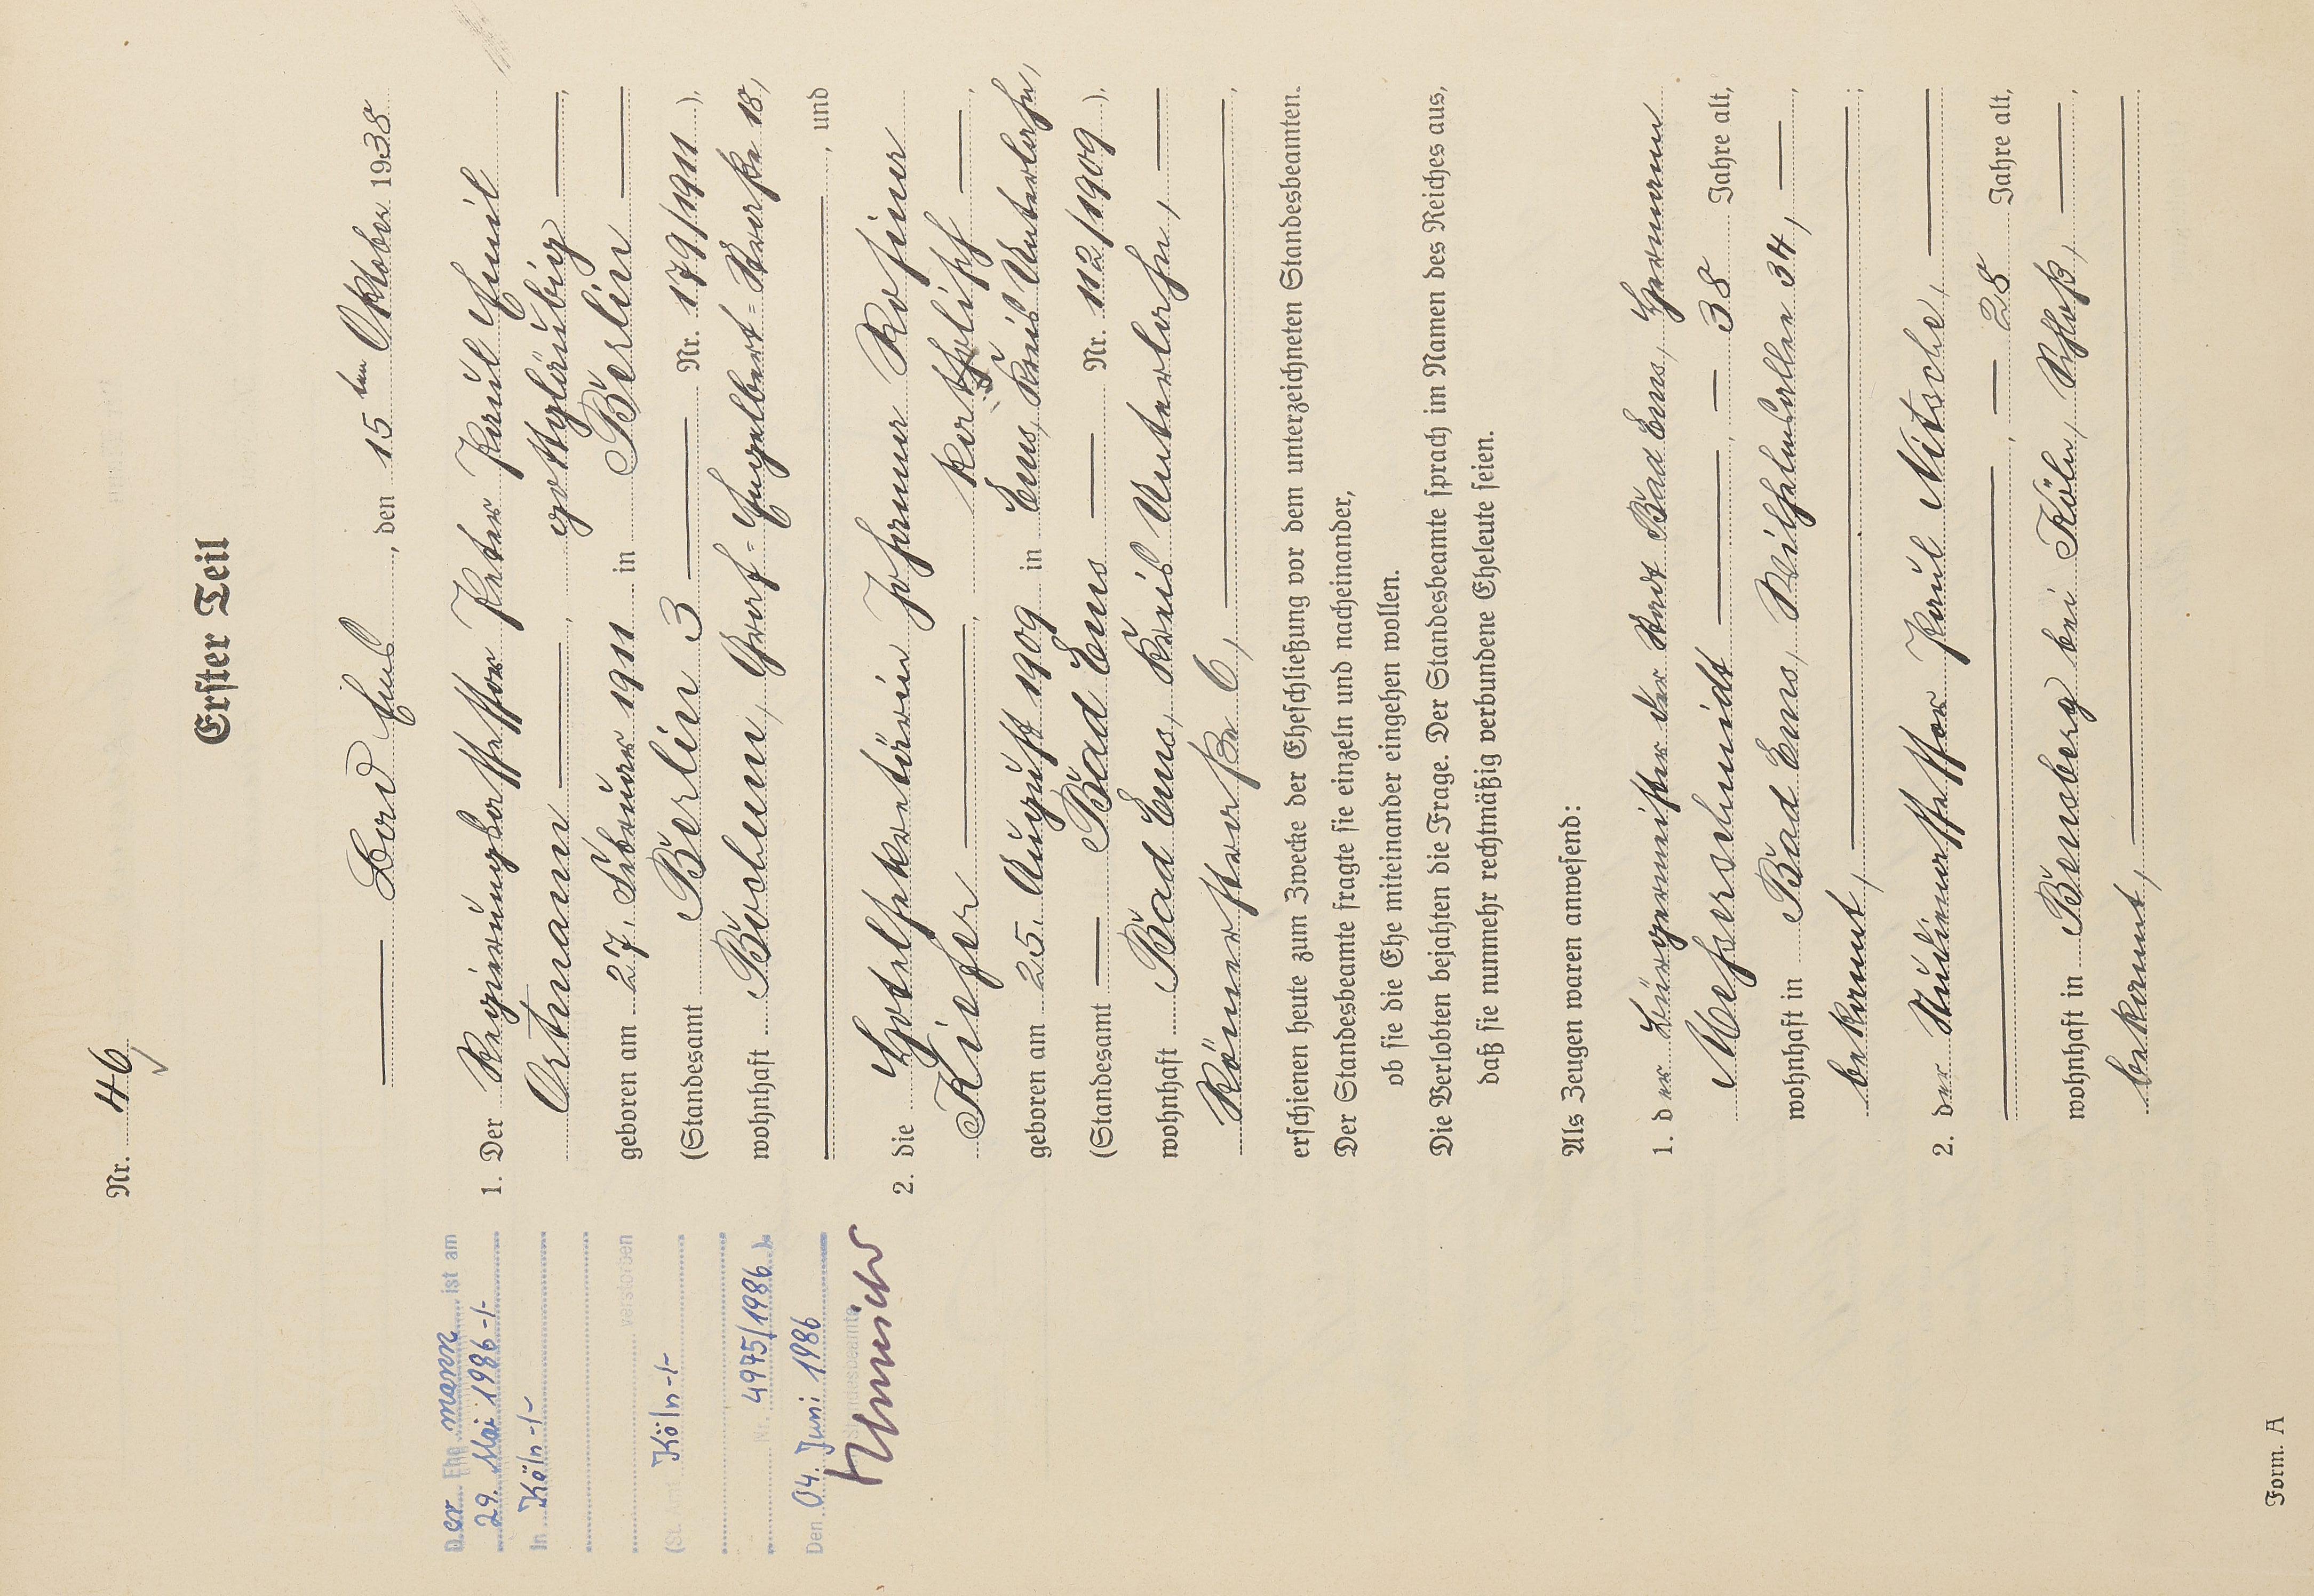 Nr. 46
Erster Teil
Bad Ems, den 15ten Oktober 1938
1. Der Regierungsassessor Peter Paul Emil
Ortmann, gottgläubig
geboren am 27. Februar 1911 in Berlin
(Standesamt Berlin 3 Nr. 179/1911),
wohnhaft Bochum, Graf-Engelbert-Straße 18,
, und
2. die Hotelsekretärin Johanna Rosina
Kiefer, katholisch,
geboren am 25. August 1909 in Ems, Kreis Unterlahn,
(Standesamt Bad Ems Nr. 112/1909),
wohnhaft Bad Ems, Kreis Unterlahn,
Römerstraße 6,
erschienen heute zum Zwecke der Eheschließung vor dem unterzeichneten Standesbeamten.
Der Standesbeamte fragte sie einzeln und nacheinander,
ob sie die Ehe miteinander eingehen wollen.
Die Verlobten bejahten die Frage. Der Standesbeamte sprach im Namen des Reiches aus,
daß sie nunmehr rechtmäßig verbundene Eheleute seien.
Als Zeugen waren anwesend:
1. der Bürgermeister der Stadt Bad Ems, Hermann
Messerschmidt, 38 Jahre alt,
wohnhaft in Bad Ems, Wilhelmsallee 34,
bekannt,
2. der Studienassessor Paul Nitsche,
, 28 Jahre alt,
wohnhaft in Bensberg bei Köln, Schloß,
bekannt,
Der Ehemann ist am
29. Mai 1986 -/-
In Köln -/-
verstorben
(St. Amt Köln -/-
Nr. 4975/1986)
Den 04. Juni 1986
Standesbeamte
Form. A